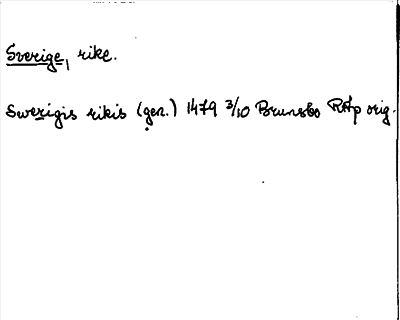 Sverige, rike.
Swerigis rikis (gen.) 1479 3/10 Brunsbo RAp orig.